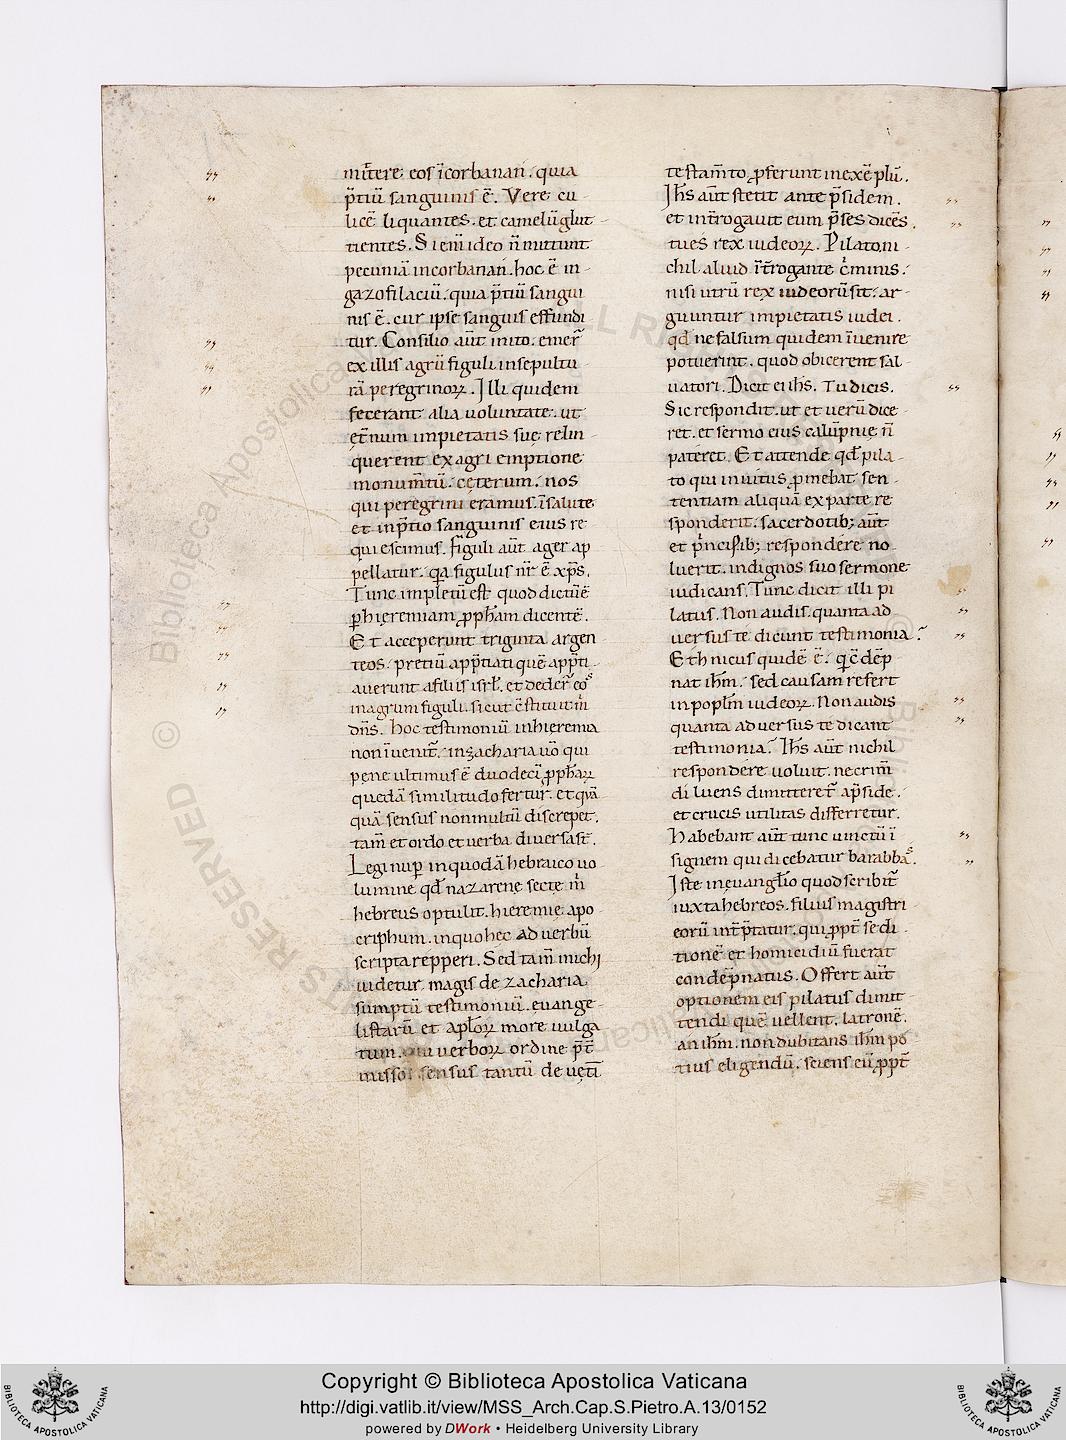 mitt̄ere eos īcorbanan. quia
p̄tiū sanguinis ē. Vere cu
licē liquantes. et camelū glut
tientes. Si enī ideo n̄ mittunt
pecuniā incorbanan. hoc ē in
gazofilaciū. quia p̄tiū sangui
nis ē. cur ipse sanguis effundi
tur. Consilio aūt inito. emer̄
ex illis agrū figuli insepultu
rā peregrinoꝝ. Illi quidem
fecerant alia uoluntate. ut
ęt̄num impietatis suę relin
querent ex agri emptione
monum̄tū. cęterum. nos
qui peregrini eramus. īsalute
et inp̄tio sanguinis eius re
quiescimus. figuli aūt ager ap
pellatur. qa figulus nr̄ ē xp̄s.
Tunc impletū est quod dictū ē
ꝑ hieremiam ꝓph̄am dicentē.
Et acceperunt triginta argen
teos. pretiū app̄tiati quē app̄ti
auerunt a filiis isrl̄. et deder̄ eos
inagrum figuli. sicut c̄stituit m̄
dn̄s. hoc testimoniū inhieremia
non īvenit̄. inzacharia uō qui
pene ultimus ē duodeci ꝓph̄aꝝ
quedā similitudo fertur. et quā
quā sensus nonmultū discrepet.
tam̄ et ordo et uerba diuersa st̄.
Legi nuꝑ inquodā hebraico uo
lumine qd̄ nazarenę sectę m̄
hebreus optulit. hieremię apo
criphum. inquo hec ad uerbū
scripta repperi. Sed tam̄ michi
uidetur magis de zacharia
sumptū testimoniū. euange
listarū et apl̄oꝝ more uulga
tum. qui uerboꝝ ordine p̄t̄
missor sensus tantū de uęt̄i
testam̄to ꝓferunt inexēplū.
Ihs̄ aūt stetit ante p̄sidem.
et int̄rogauit eum p̄ses dicēs.
tu es rex iudeoꝝ. Pilato ni
chil aliud īt̄rogante c̄minis.
nisi utrū rex iudeorū sit. ar
guuntur impietatis iudei.
qd̄ ne falsum quidem īuenire
potuerint. quod obicerent sal
uatori. Dicit ei ihs̄. Tu dicis.
Sic respondit. ut et uerū dice
ret. et sermo eius calūpnię n̄
pateret. Et attende qd̄ pila
to qui inuitus ꝓmebat sen
tentiam aliquā ex parte re
sponderit. sacerdotib; aūt
et p̄ncipib; respondere no
luerit. indignos suo sermone
iudicans. Tunc dicit illi pi
latus. Non audis quanta ad
uersus te dicunt testimonia?
Ethnicus quidē ē. qi c̄dēp
nat ihm̄. sed causam refert
in popl̄m iudeoꝝ. Non audis
quanta aduersus te dicant
testimonia? Ihs̄ aūt nichil
respondere uoluit. ne crim̄
diluens dimitteret̄ ap̄side.
et crucis utilitas differretur.
Habebant aūt tunc uinctū ī
signem qui dicebatur barabbas.
Iste in euangl̄io quod scribit̄
iuxta hebreos. filius magistri
eorū int̄p̄tatur. qui ꝓpt̄ sedi
tionē et homicidiū fuerat
condēpnatus. Offert aūt
optionem eis pilatus dimit
tendi quē uellent. latronē.
an ihm̄. non dubitans ihm̄ po
tius eligendū. sciens eū ꝓpt̄
© Biblioteca Apostolica Vaticana ALL RIGHTS RESERVED
Copyright © Biblioteca Apostolica Vaticana
http://digi.vatlib.it/view/MSS_Arch.Cap.S.Pietro.A.13/0152
powered by DWork • Heidelberg University Library
BIBLIOTECA APOSTOLICA VATICANA
BIBLIOTECA APOSTOLICA VATICANA